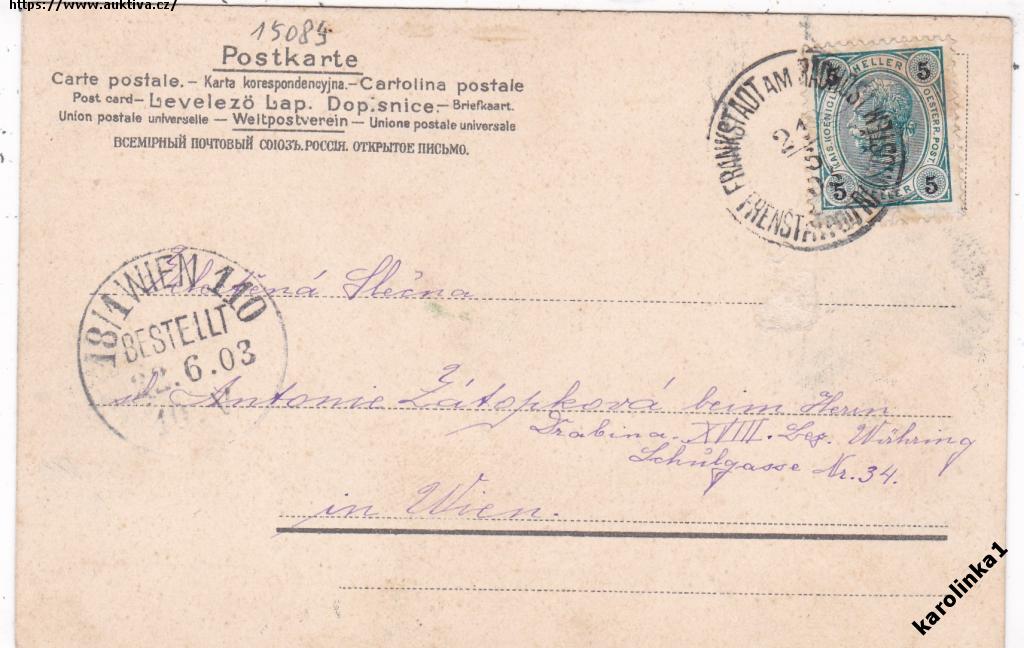 https://www.auktiva.cz/
15084
Postkarte
Carte postale. – Karta korespondencyjna. – Cartolina postale
Post card – Levelező Lap. Dopisnice. – Briefkaart.
Union postale universelle – Weltpostverein – Unione postale universale
ВСЕМІРНЫЙ ПОЧТОВЫЙ СОЮЗЪ. РОССІЯ. ОТКРЫТОЕ ПИСЬМО.
5 HELLER 5
KAIS. KOENIGL. OESTERR. POST.
5 HELLER 5
FRANKSTADT AM
FRENSTAT POD
18/1 WIEN 110
BESTELLT
22.6.03
Slečna
Antonie Zátopková beim Herrn
Drabina. XVIII. Bez. Währing
Schulgasse Nr. 34.
in Wien.
karolinka1